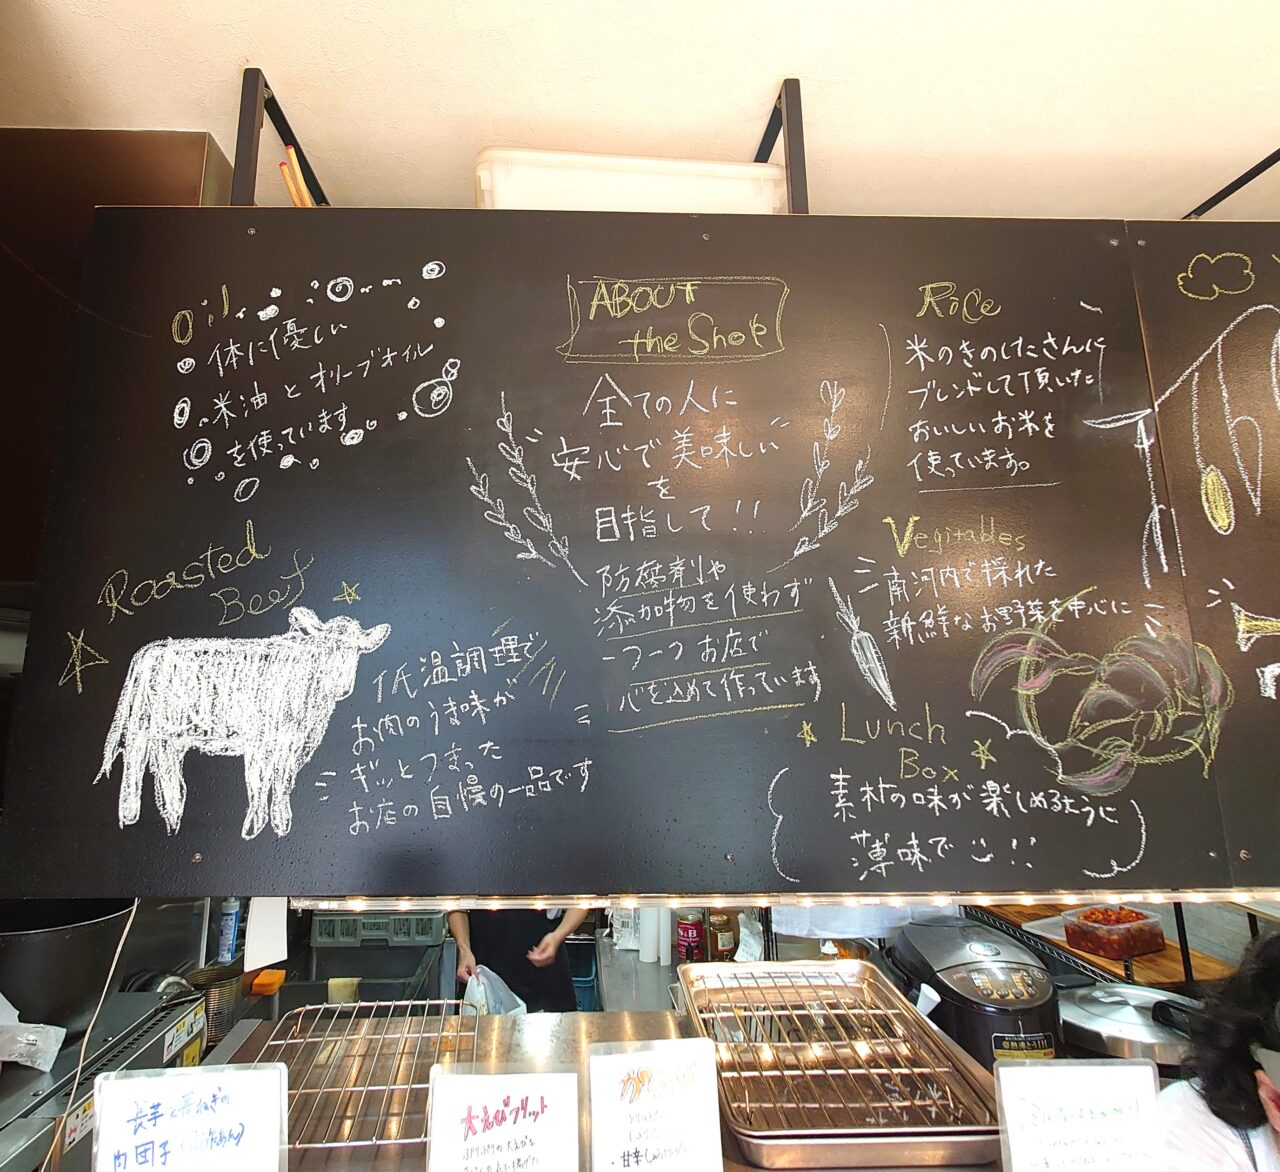 Oil
体に優しい
米油とオリーブオイル
を使っています
Roasted
Beef
低温調理で
お肉のうま味が
ギッとつまった
お店の自慢の一品です
ABOUT
the Shop
全ての人に
"安心で美味しい"
を
目指して!!
防腐剤や
添加物を使わず
一つ一つお店で
心を込めて作っています
Rice
米のきのしたさんに
ブレンドして頂いた
おいしいお米を
使っています。
Vegitables
南河内で採れた
新鮮なお野菜を中心に
Lunch
Box
素材の味が楽しめるように
薄味で!!
Th
S&B
長芋と長ねぎの
肉団子
大えびフリット